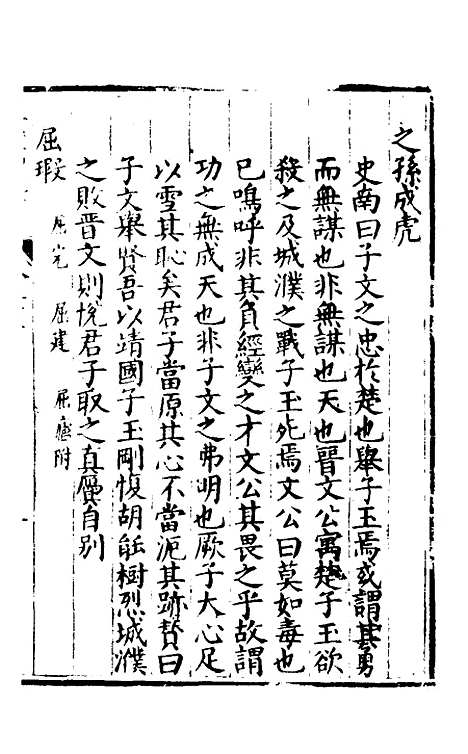 之孫成虎
史南曰子文之忠於楚也舉子玉焉或謂其勇
而無謀也非無謀也天也晉文公寓楚子玉欲
殺之及城濮之戰子玉死焉文公曰莫如毒也
已嗚呼非其負經變之才文公其畏之乎故謂
功之無成天也非子文之弗明也厥子大心足
以雪其恥矣君子當原其心不當泥其跡賛曰
子文舉賢吾以靖國子玉剛愎胡能樹烈城濮
之敗晉文則悅君子取之真贗自別
屈瑕 屈完 屈建 屈 附